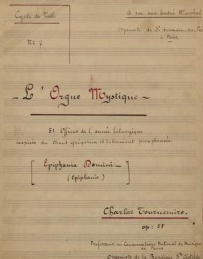 Cycle de Noël
A mon ami André Marchal
Organiste de St Germain des Prés
à Paris
No 7
- L'Orgue Mystique -
51 Offices de l'année liturgique
inspirés du chant grégorien et librement paraphrasés
[ Epiphania Domini ]
(Epiphanie)
Charles Tournemire
op: 55
Professeur au Conservatoire National de Musique
de Paris
Organiste de la Basilique Ste Clotilde